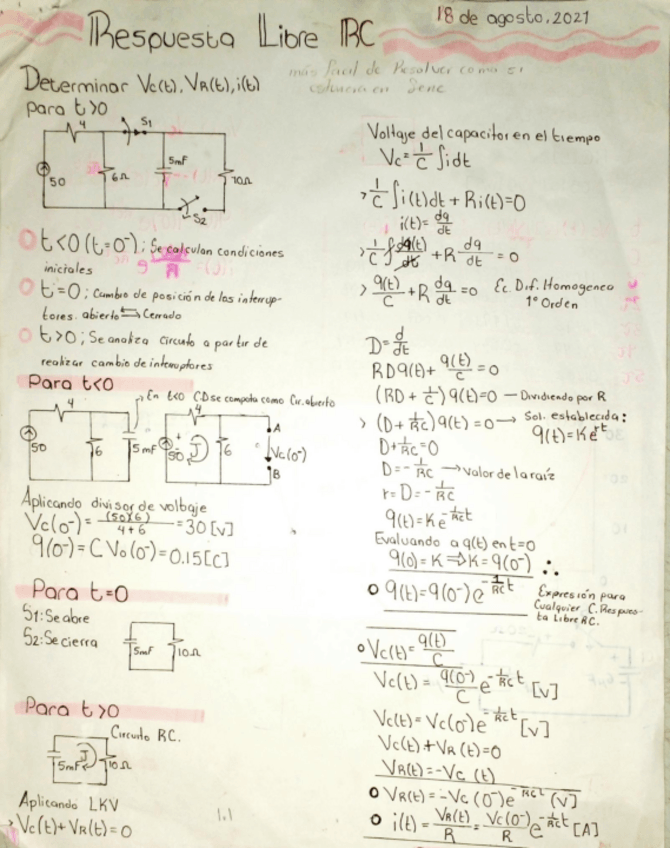 18 de agosto, 2021
Respuesta Libre RC
más facil de Resolver como si
estuviera en Serie
Determinar Vc(t), VR(t), i(t)
para t>0
4
S1
50
6Ω
5mF
10Ω
S2
t<0 (t=0⁻); Se calculan condiciones
iniciales
t=0; Cambio de posición de los interrup-
tores. abierto ⇆ Cerrado
t>0; Se analiza Circuito a partir de
realizar cambio de interruptores
Para t<0
En t<0 CD se comporta como Cir. abierto
4
50
6
5mF
4
50
6
A
Vc(0⁻)
B
Aplicando divisor de voltaje
Vc(0⁻) = (50)(6) / 4+6 = 30 [V]
q(0⁻) = C Vo(0⁻) = 0.15 [C]
Para t=0
S1: Se abre
S2: Se cierra
5mF
10Ω
Para t>0
Circuito RC.
5mF
10Ω
Aplicando LKV
> Vc(t) + VR(t) = 0
1.1
Voltaje del capacitor en el tiempo
Vc = 1/C ∫ i dt
> 1/C ∫ i(t)dt + Ri(t) = 0
i(t) = dq/dt
> 1/C ∫ dq(t)/dt + R dq/dt = 0
> q(t)/C + R dq/dt = 0 Ec. Dif. Homogenea
1° Orden
D = d/dt
RDq(t) + q(t)/C = 0
(RD + 1/C) q(t) = 0 — Dividiendo por R
> (D + 1/RC) q(t) = 0 → Sol. establecida:
q(t) = Ke^rt
D + 1/RC = 0
D = - 1/RC → Valor de la raíz
r = D = - 1/RC
q(t) = Ke^-1/RC t
Evaluando a q(t) en t=0
q(0) = K ⇒ K = q(0⁻) ∴
q(t) = q(0⁻) e^-1/RC t Expresión para
Cualquier C. Respues-
ta Libre RC.
Vc(t) = q(t)/C
Vc(t) = q(0⁻)/C e^-1/RC t [V]
Vc(t) = Vc(0⁻) e^-1/RC t [V]
Vc(t) + VR(t) = 0
VR(t) = -Vc (t)
VR(t) = -Vc (0⁻) e^-1/RC t [V]
i(t) = VR(t)/R = Vc(0⁻)/R e^-1/RC t [A]